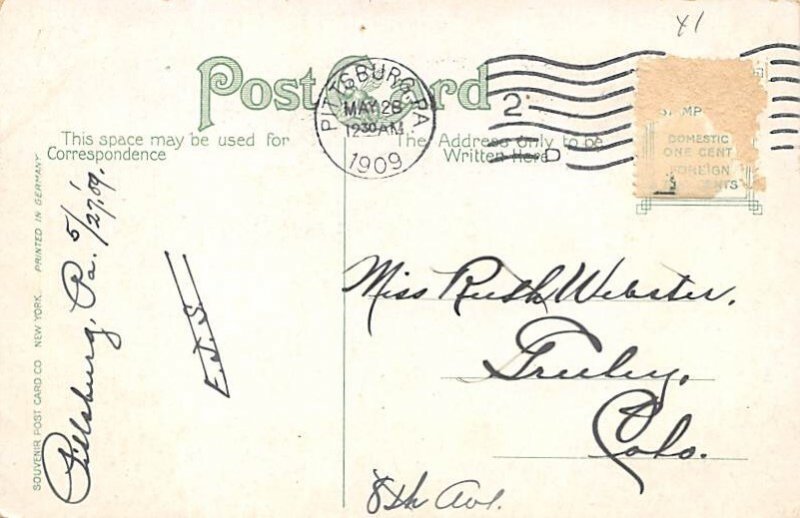 41
Post Card
PITTSBURG, PA.
MAY 28
12 30 AM
1909
2
D
STAMP
DOMESTIC
ONE CENT
FOREIGN
CENTS
This space may be used for
Correspondence
The Address only to be
Written Here
SOUVENIR POST CARD CO NEW YORK. PRINTED IN GERMANY
Pittsburg, Pa. 5/27/09.
E.J.S.
Miss Ruth Webster.
Greeley,
Colo.
8th Ave.